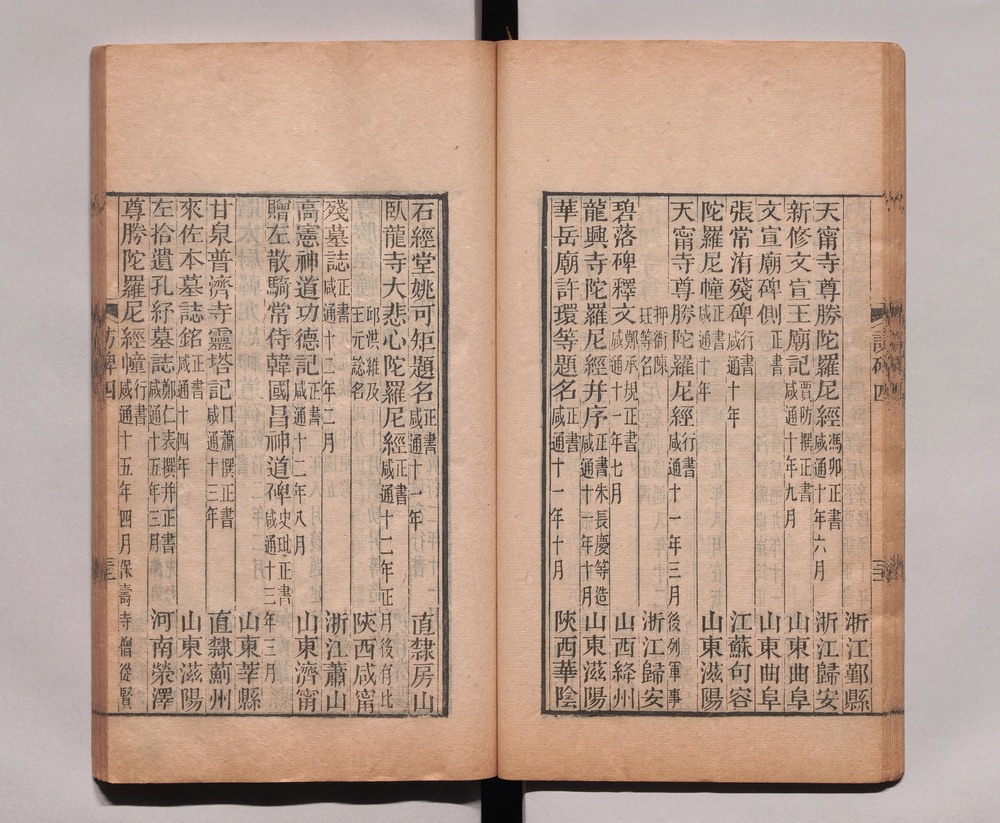 浙江鄞縣
天甯寺尊勝陀羅尼經馮卯正書咸通十年六月浙江歸安
新修文宣王廟記賈防撰正書咸通十年九月山東曲阜
文宣廟碑側正書山東曲阜
張常洧殘碑行書咸通十年江蘇句容
陀羅尼幢正書咸通十年山東滋陽
天甯寺尊勝陀羅尼經行書咸通十一年三月後列軍事
押衙陳珏等名浙江歸安
碧落碑釋文鄭承規正書咸通十一年七月山西絳州
龍興寺陀羅尼經并序正書朱長慶等造咸通十一年十月山東滋陽
華岳廟許環等題名正書咸通十一年十月陝西華陰
石經堂姚可矩題名正書咸通十二年直隸房山
臥龍寺大悲心陀羅尼經正書咸通十二年正月後有比
邱洪維及王元諗名陝西咸甯
殘墓誌正書咸通十二年二月浙江蕭山
高憲神道功德記正書咸通十二年八月山東濟甯
贈左散騎常侍韓國昌神道碑史玭正書咸通十三年三月
山東莘縣
甘泉普濟寺靈塔記口蕭撰正書咸通十三年直隸薊州
來佐本墓誌銘正書咸通十四年山東滋陽
左拾遺孔紓墓誌鄭仁表撰并正書咸通十五年三月河南滎澤
尊勝陀羅尼經幢行書咸通十五年四月保壽寺僧從賢